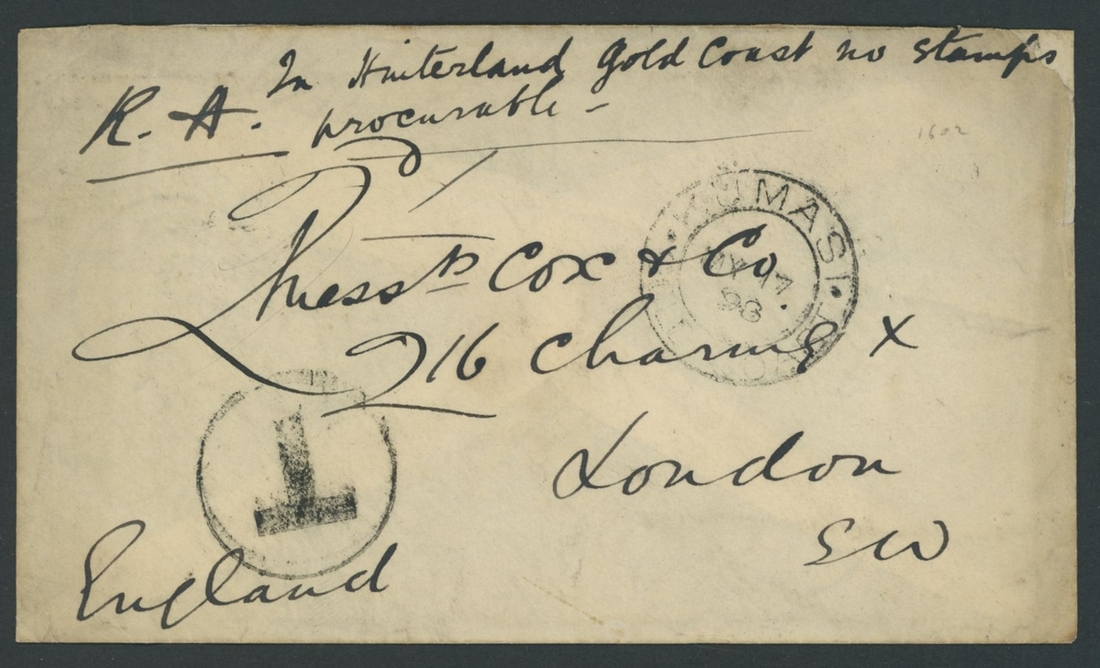 In Hinterland Gold Coast no stamps
R. A. procurable -
KUMASI.
MY 17
98
Messrs Cox & Co.
16 Charing X
T
London
SW
England